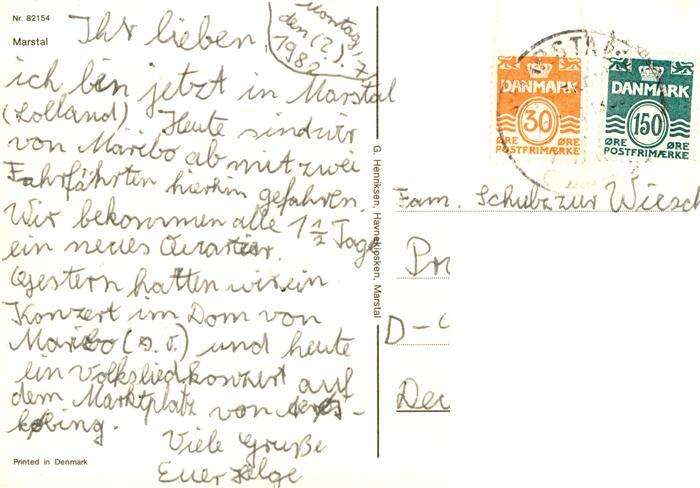 Nr. 82154
Marstal
Montag,
den (2). 7.
1982
Ihr lieben,
ich bin jetzt in Marstal
(Lolland) Heute sind wir
von Maribo ab mit zwei
Fahrfährten hierhin gefahren.
Wir bekommen alle 1 1/2 Tage
ein neues Quartier.
Gestern hatten wir ein
Konzert im Dom von
Maribo (s. o.) und heute
ein Volksliedkonzert auf
dem Marktplatz von
købing.
Viele Grüße
Euer Helge
Printed in Denmark
G. Henriksen, Havnekiosken, Marstal
DANMARK
30
ØRE ØRE
POSTFRIMÆRKE
DANMARK
150
ØRE ØRE
POSTFRIMÆRKE
Fam. Schulz zur Wiesch
D-